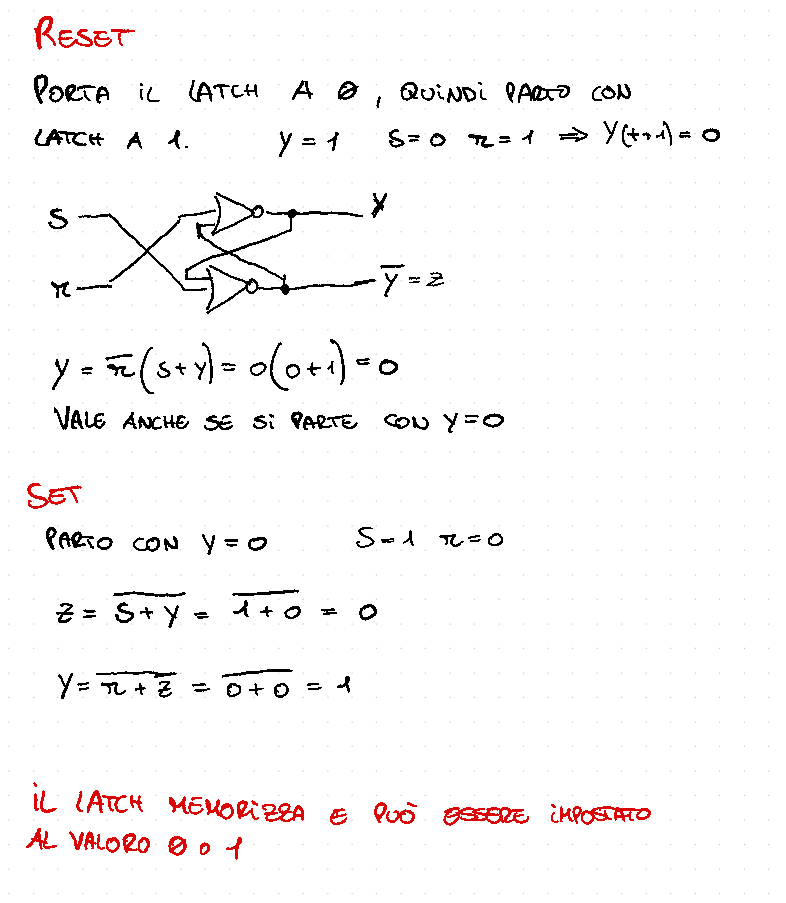 RESET
PORTA IL LATCH A 0, QUINDI PARTO CON
LATCH A 1. Y = 1 S=0 r=1 ⇒ Y(t+1) = 0
S Y
r Y̅ = Z
Y = r̅(S+Y) = 0(0+1) = 0
VALE ANCHE SE SI PARTE CON Y=0
SET
PARTO CON Y=0 S=1 r=0
Z = \overline{S+Y} = \overline{1+0} = 0
Y = \overline{r+Z} = \overline{0+0} = 1
IL LATCH MEMORIZZA E PUÒ ESSERE IMPOSTATO
AL VALORO 0 O 1